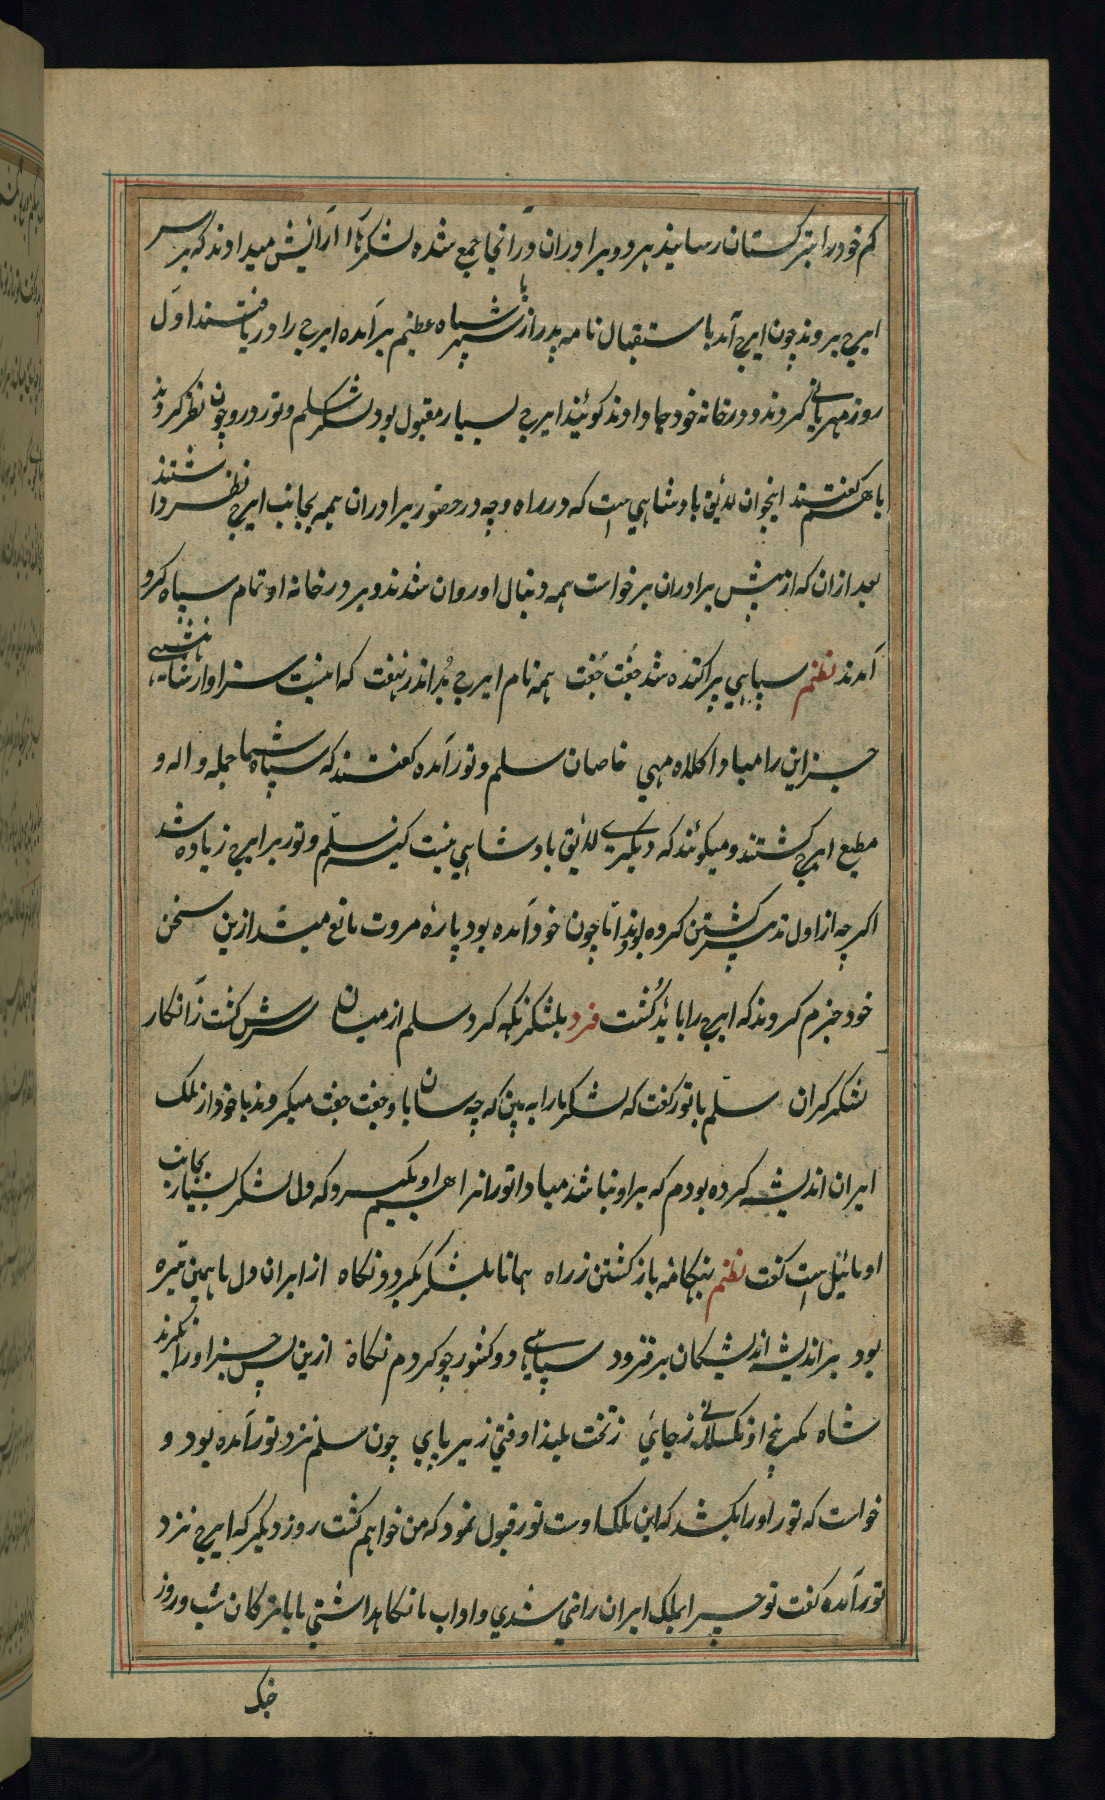 کم خود را بترکستان رسانید هر دو برادران در آنجا جمع شده لشکرها آرایش میدادند که بر سر
ایرج بروند چون ایرج آمد با استقبال نامه پدر از با سپاه عظیم برآمده ایرج را دریافتند اول
روز مهربانی کردند و در خانه خود جا دادند کویند ایرج بسیار مقبول بود لشکر سلم و تور در و چون نظر کردند
باهم کفتند اینجوان لایق بادشاهی است که در راه و چه در حضور برادران همه بجانب ایرج نظر داشتند
بعد ازان که از پیش برادران برخواست همه دنبال او روان شدند و بر در خانه او تمام سپاه کرد
آمدند نظم سپاهی پراکنده شد جفت جفت همه نام ایرج بُد اندر نهفت که اینت سزاوار شاهنشهی
جز این را مبادا کلاه مهی خاصان سلم و تور آمده کفتند که سپاه شما جمله واله و
مطیع ایرج کشتند و میکویند که دیکری لایق بادشاهی نیست کینه سلم و تور بر ایرج زیاده شد
اکرچه از اول تدبیر کشتن کرده بودند امّا چون خود آمده بود پاره مروت مانع میشد ازین سخن
خود جزم کردند که ایرج را باید کُشت فرد بلشکر نکه کرد سلم از میان سرش کشت زآنکار
لشکر کران سلم با تور کفت که لشکر ما را به بین که چه سان با او جفت جفت میکردند با خود از ملک
ایران اندیشه کرده بودم که بر او نباشد مبادا توران را هم او بکیرد که دل لشکر بسیار بجانب
او مائیل است کفت نظم بهنکامه باز کشتن ز راه همانا بلشکر بکردو نکاه از ایران دلم ما همین تیره
بود بر اندیشه اندیشکان بر فزود سپاهی دو کشور چو کردم نکاه ازین پس جز او را نکیرند
شاه کر بیخ او نکسلانی ز جائی ز تخت بلند اوفتی زیر پای چون سلم نزد تور آمده بود و
خواست که تور او را بکشد که این ملک اوست تور قبول نمود که من خواهم کشت روز دیکر که ایرج نزد
تور آمده کفت تو چرا بملک ایران راضی شدی و اداب ما نکاهداشتی ما با ترکان شب و روز
جنک